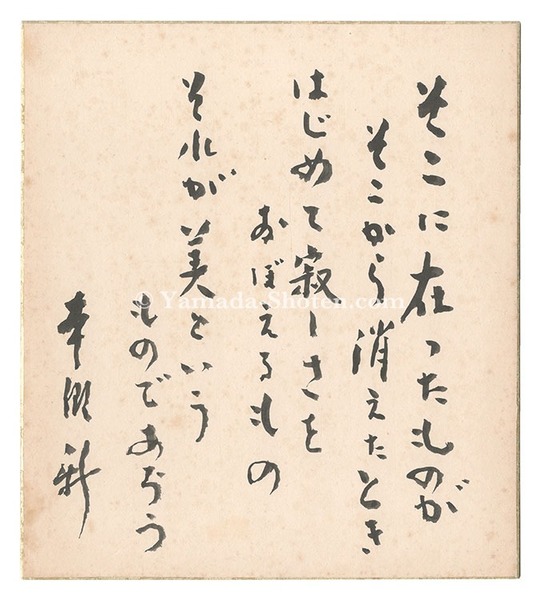 そこに在ったものが
そこから消えたとき
はじめて寂しさを
おぼえるもの
それが美という
ものであろう
© Yamada Shoten.com